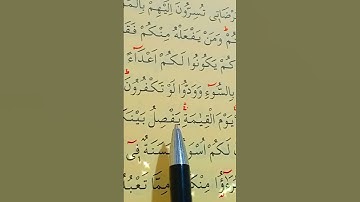 مَرْضَاتِي تُسِرُّونَ إِلَيْهِمْ بِالْمَ
وَمَنْ يَفْعَلْهُ مِنْكُمْ فَقَ
كُمْ يَكُونُوا لَكُمْ أَعْدَاءً
بِالسُّوءِ وَوَدُّوا لَوْ تَكْفُرُونَ
يَوْمَ الْقِيٰمَةِ يَفْصِلُ بَيْنَكُ
لَكُمْ أُسْوَةٌ حَسَنَةٌ فِي
مِنْكُمْ وَمِمَّا تَعْبُدُ